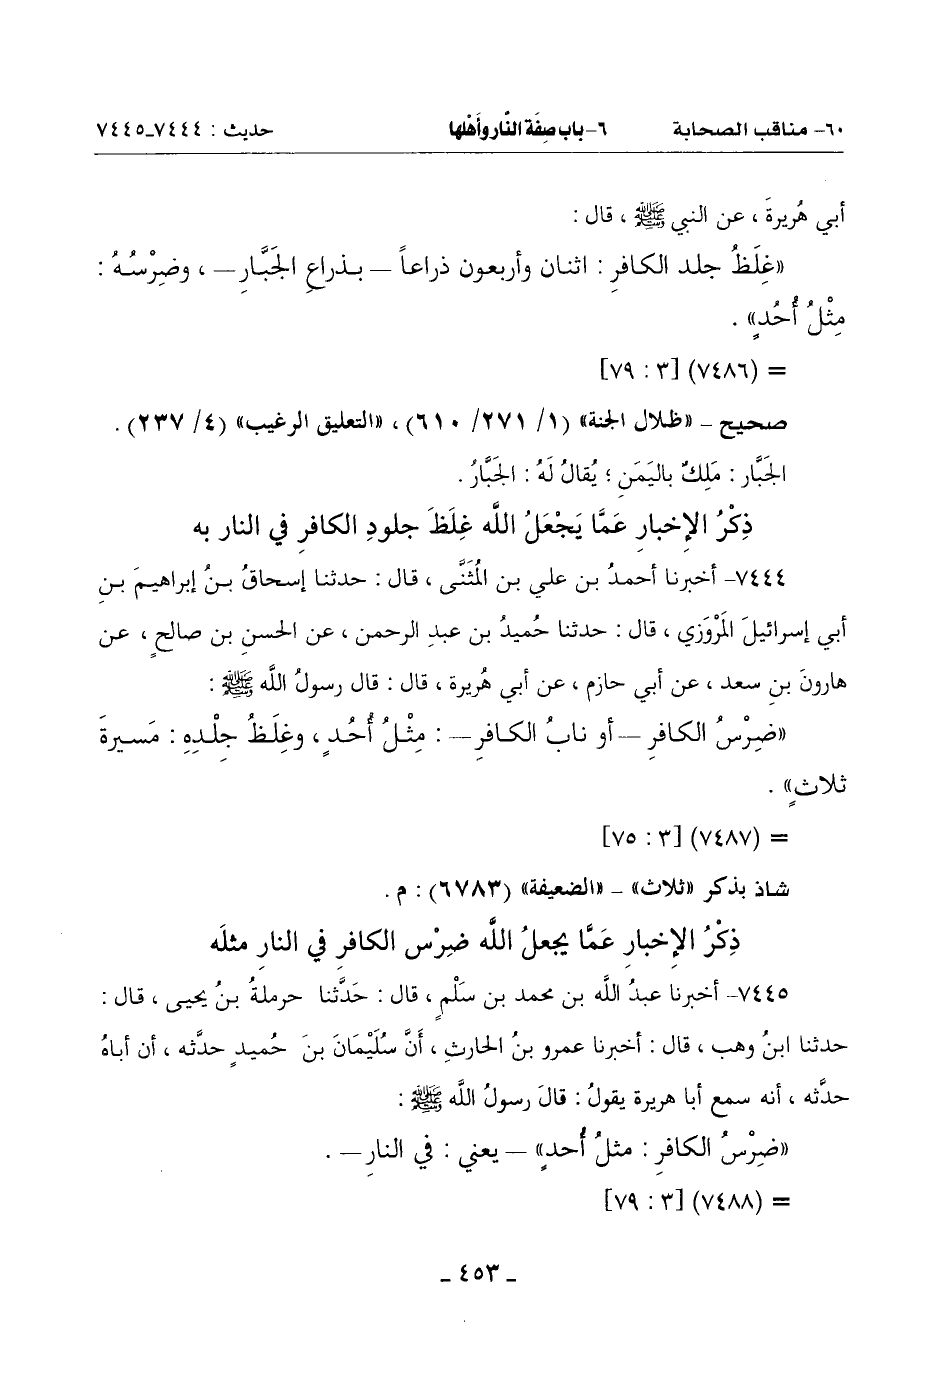 ٦٠- مناقب الصحابة ٦- باب صِفَة النَّار وأَهْلها حديث : ٧٤٤٤ـ٧٤٤٥
أبي هُريرةَ ، عن النبي ﷺ ، قال :
«غِلَظُ جلد الكافرِ : اثنان وأربعون ذراعاً – بذراعِ الجَبَّارِ – ، وضِرْسُهُ :
مِثْلُ أُحُدٍ» .
= (٧٤٨٦) [٣ : ٧٩]
صحيح – «ظلال الجنة» (١/ ٢٧١/ ٦١٠) ، «التعليق الرغيب» (٤/ ٢٣٧) .
الجَبَّار : مَلِكٌ باليَمَنِ ؛ يُقالُ لَهُ : الجَبَّارُ .
ذِكْرُ الإخبارِ عَمَّا يَجْعَلُ اللَّه غِلَظَ جلودِ الكافرِ في النار به
٧٤٤٤– أخبرنا أحمدُ بن علي بن المُثَنَّى ، قال : حدثنا إسحاقُ بنُ إبراهيمَ بنِ
أبي إسرائيلَ المَرْوَزي ، قال : حدثنا حُميدُ بن عبدِ الرحمن ، عن الحسن بن صالحٍ ، عن
هارونَ بنِ سعد ، عن أبي حازم ، عن أبي هُريرة ، قال : قال رسولُ اللَّه ﷺ :
«ضِرْسُ الكافرِ – أو نابُ الكافرِ – : مِثْلُ أُحُدٍ ، وغِلَظُ جِلْدِهِ : مَسيرةَ
ثلاثٍ» .
= (٧٤٨٧) [٣ : ٧٥]
شاذ بذكر «ثلاث» – «الضعيفة» (٦٧٨٣) : م .
ذِكْرُ الإخبارِ عَمَّا يجعلُ اللَّه ضِرْس الكافرِ في النارِ مثلَه
٧٤٤٥– أخبرنا عبدُ اللَّه بن محمد بن سَلْمٍ ، قال : حَدَّثنا حرملةُ بنُ يحيى ، قال :
حدثنا ابنُ وهب ، قال : أخبرنا عمرو بنُ الحارثِ ، أَنَّ سُلَيْمَانَ بنَ حُميدٍ حدَّثه ، أن أباهُ
حدَّثه ، أنه سمع أبا هريرة يقولُ : قالَ رسولُ اللَّه ﷺ :
«ضِرْسُ الكافرِ : مثلُ أُحدٍ» – يعني : في النارِ – .
= (٧٤٨٨) [٣ : ٧٩]
ـ ٤٥٣ ـ